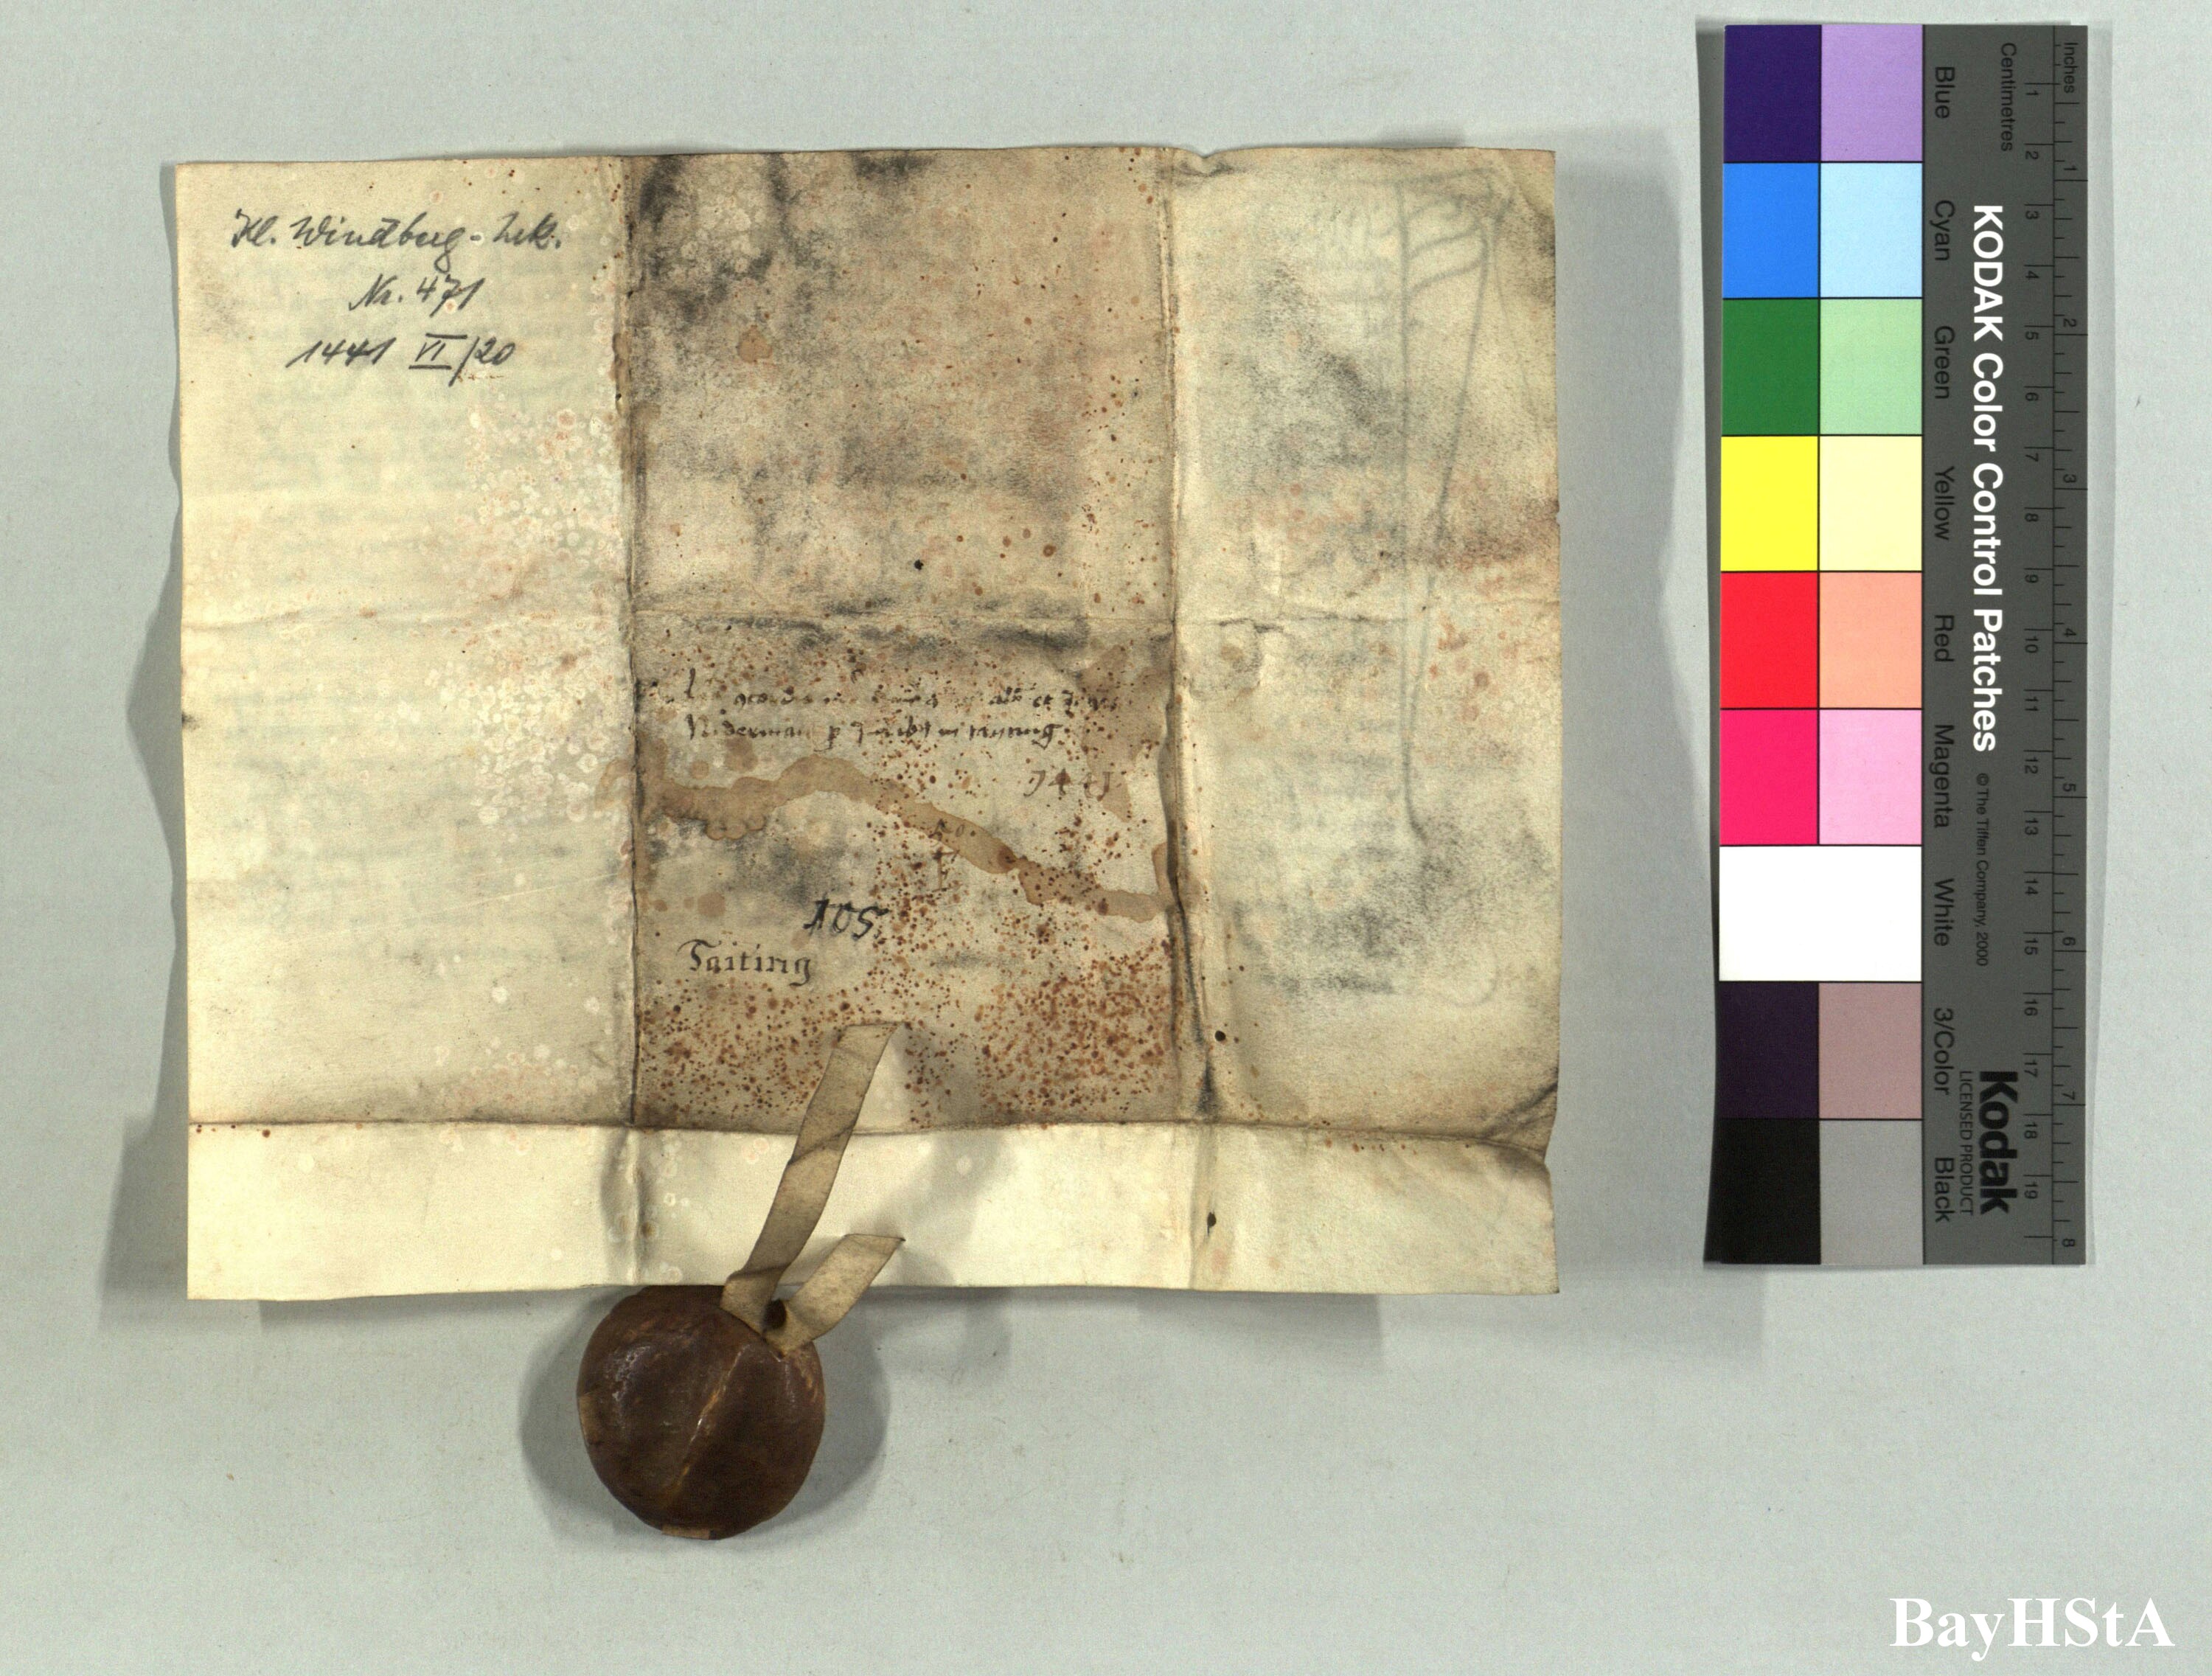 Kl. Windberg - Urk.
Nr. 471
1441 VI/20
et
Niderman p in
1441
105
Taiting
Inches 1 2 3 4 5 6 7 8
Centimetres 1 2 3 4 5 6 7 8 9 10 11 12 13 14 15 16 17 18 19
KODAK Color Control Patches © The Tiffen Company, 2000
Kodak
LICENSED PRODUCT
Blue Cyan Green Yellow Red Magenta White 3/Color Black
BayHStA